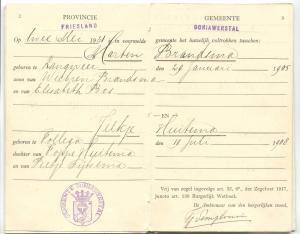 2
PROVINCIE
FRIESLAND
Op twee Mei 1931 is voormelde
Marten
geboren te Langweer
zoon van Wiebren Brandsma
en van Elisabeth Bos
Jeltje
geboren te Follega
dochter van Poppe Huitema
en van
GEMEENTE
3
DONIAWERSTAL
gemeente het huwelijk voltrokken tusschen:
Brandsma
den 29 Januari 1905
EN
Huitema
den 11 Juli 1908
Vrij van zegel ingevolge art. 32, 6°, der Zegelwet 1917,
juncto art. 136 Burgerlijk Wetboek.
De Ambtenaar van den burgerlijken stand,